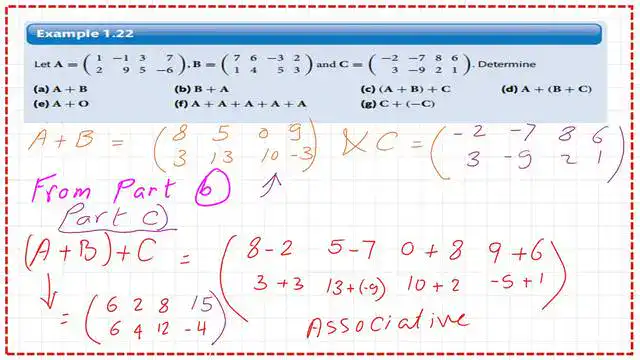 Example 1.22
Let A = ( 1 −1 3 7 ; 2 9 5 −6 ), B = ( 7 6 −3 2 ; 1 4 5 3 ) and C = ( −2 −7 8 6 ; 3 −9 2 1 ). Determine
(a) A + B (b) B + A (c) (A + B) + C (d) A + (B + C)
(e) A + O (f) A + A + A + A + A (g) C + (−C)
A+B = ( 8 5 0 9 ; 3 13 10 -3 ) & C = ( -2 -7 8 6 ; 3 -9 2 1 )
From Part b
Part C)
(A+B)+C = ( 8-2 5-7 0+8 9+6 ; 3+3 13+(-9) 10+2 -5+1 )
= ( 6 2 8 15 ; 6 4 12 -4 )
Associative